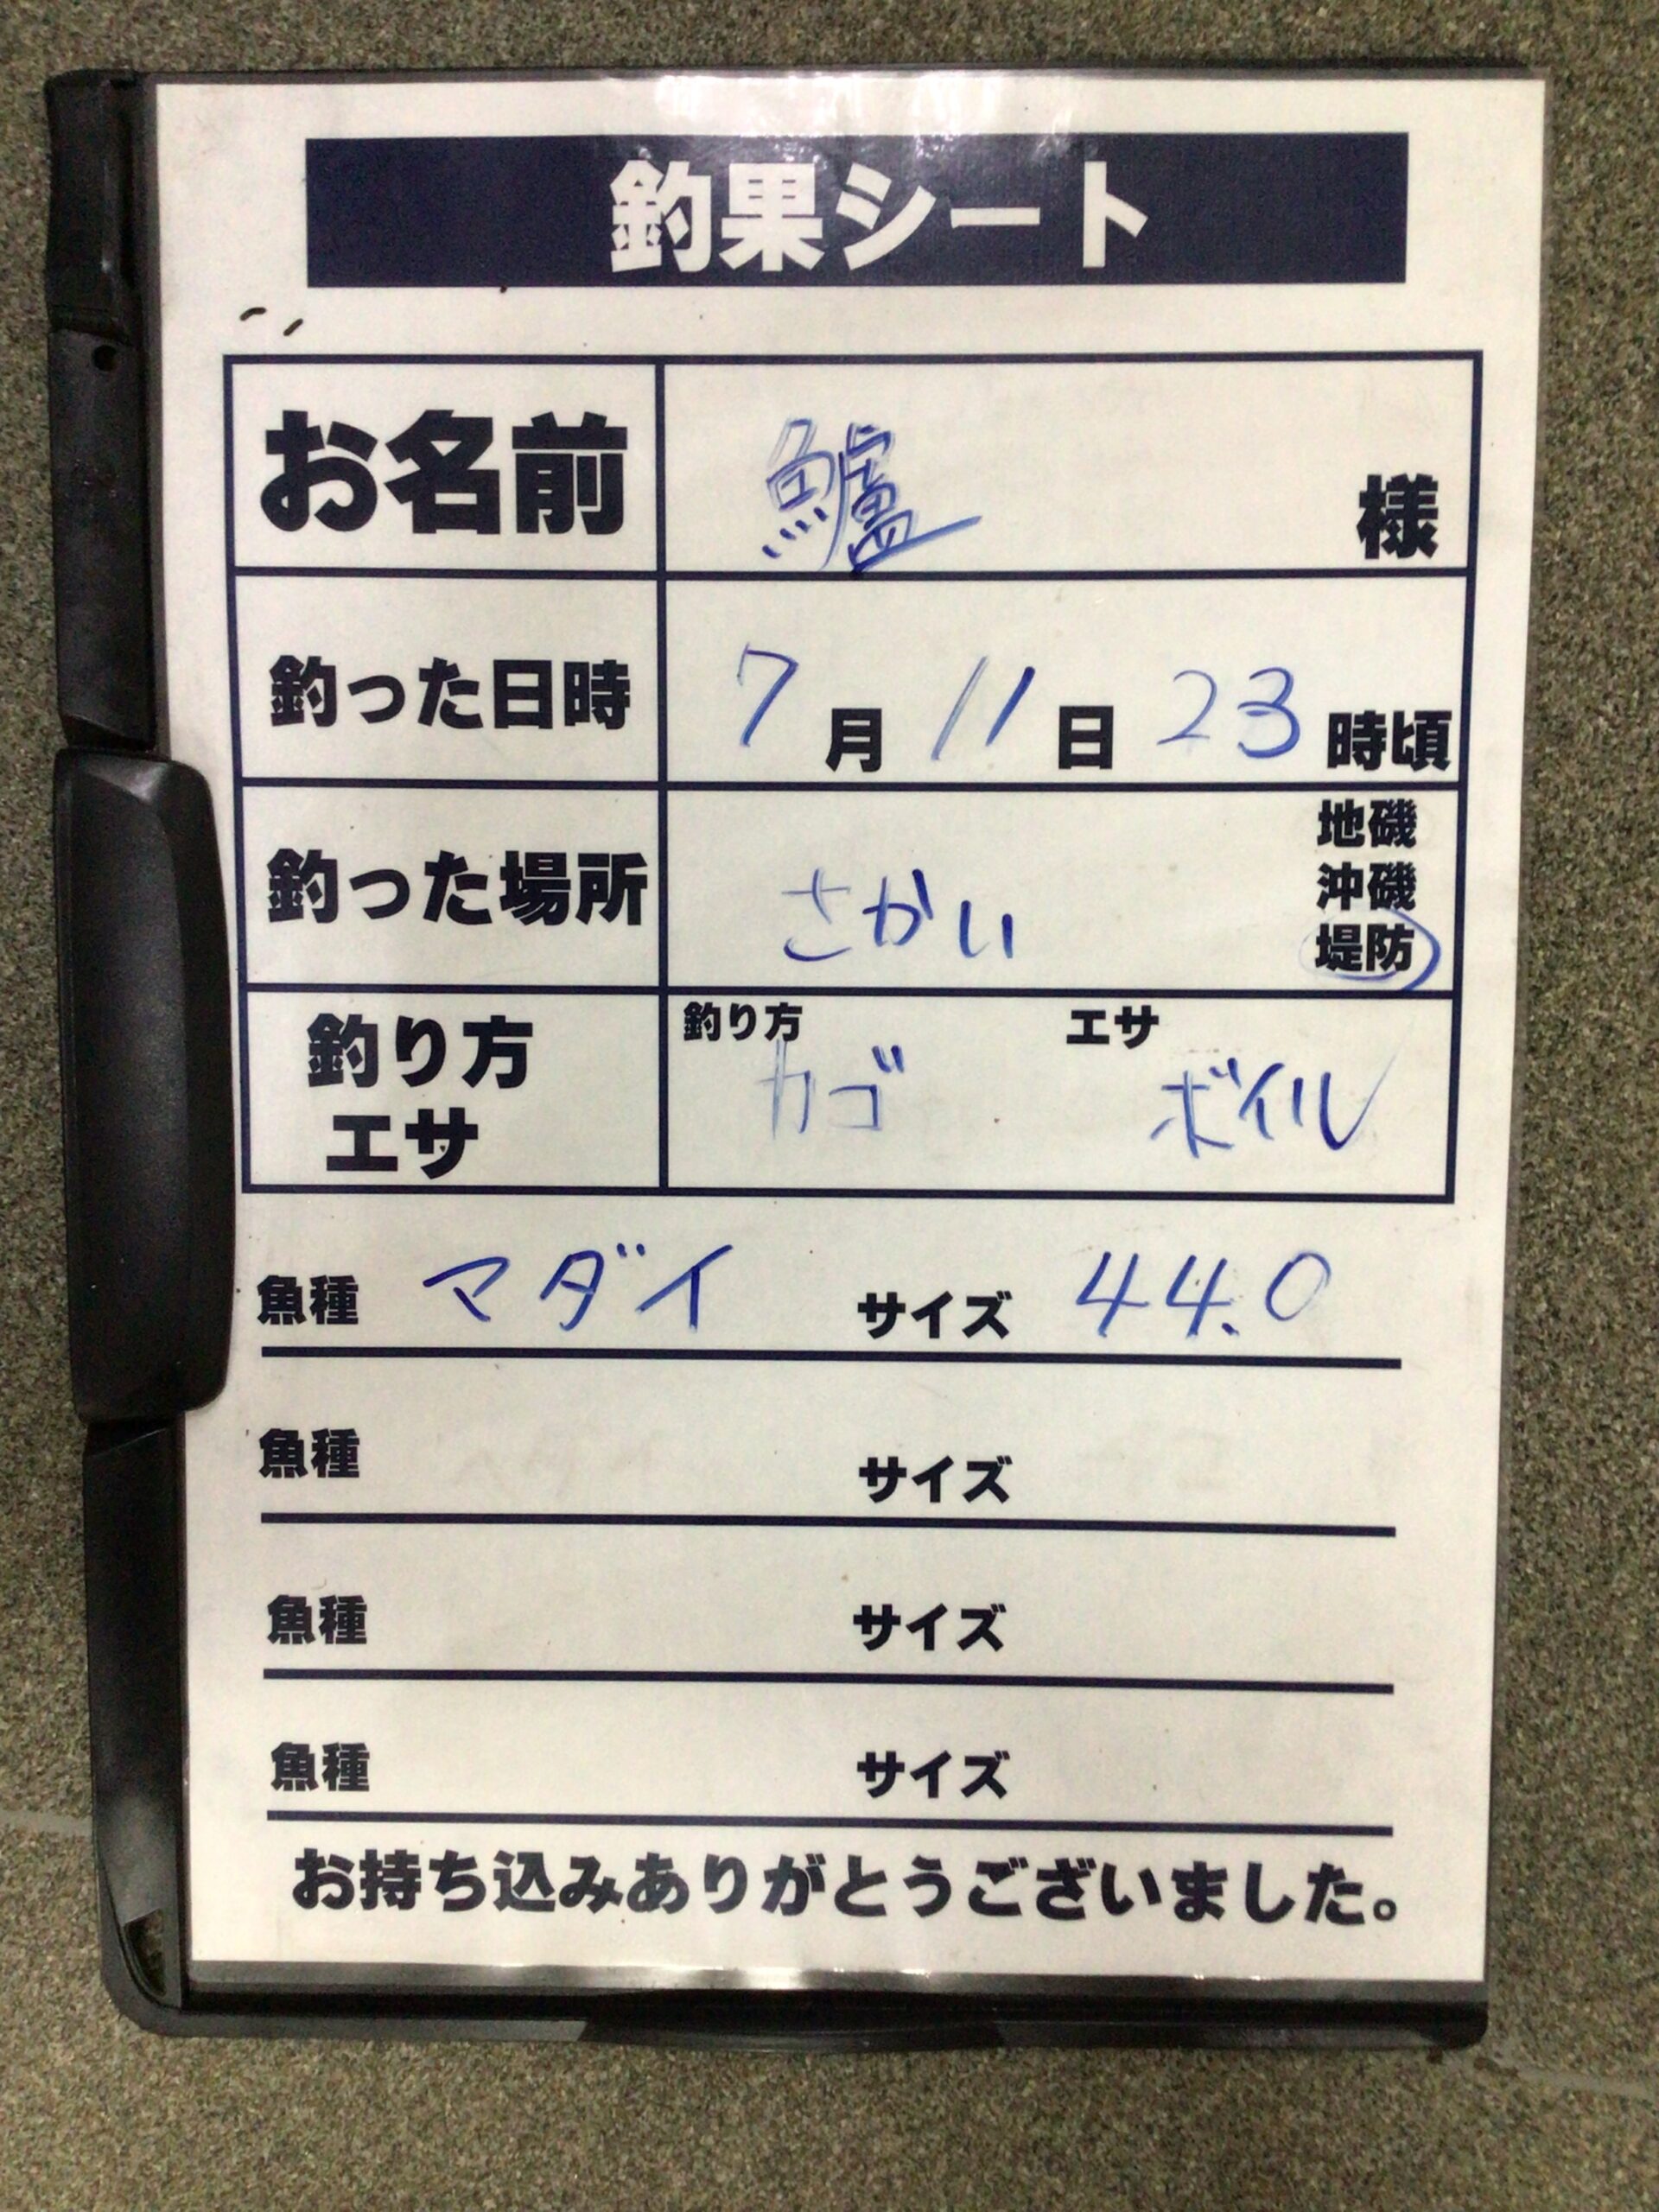 釣果シート
お名前 鱸 様
釣った日時 7月11日23時頃
釣った場所 さかい 地磯
沖磯
堤防
釣り方 エサ
釣り方
エサ
カゴ ボイル
魚種 マダイ サイズ 44.0
魚種 サイズ
魚種 サイズ
魚種 サイズ
お持ち込みありがとうございました。